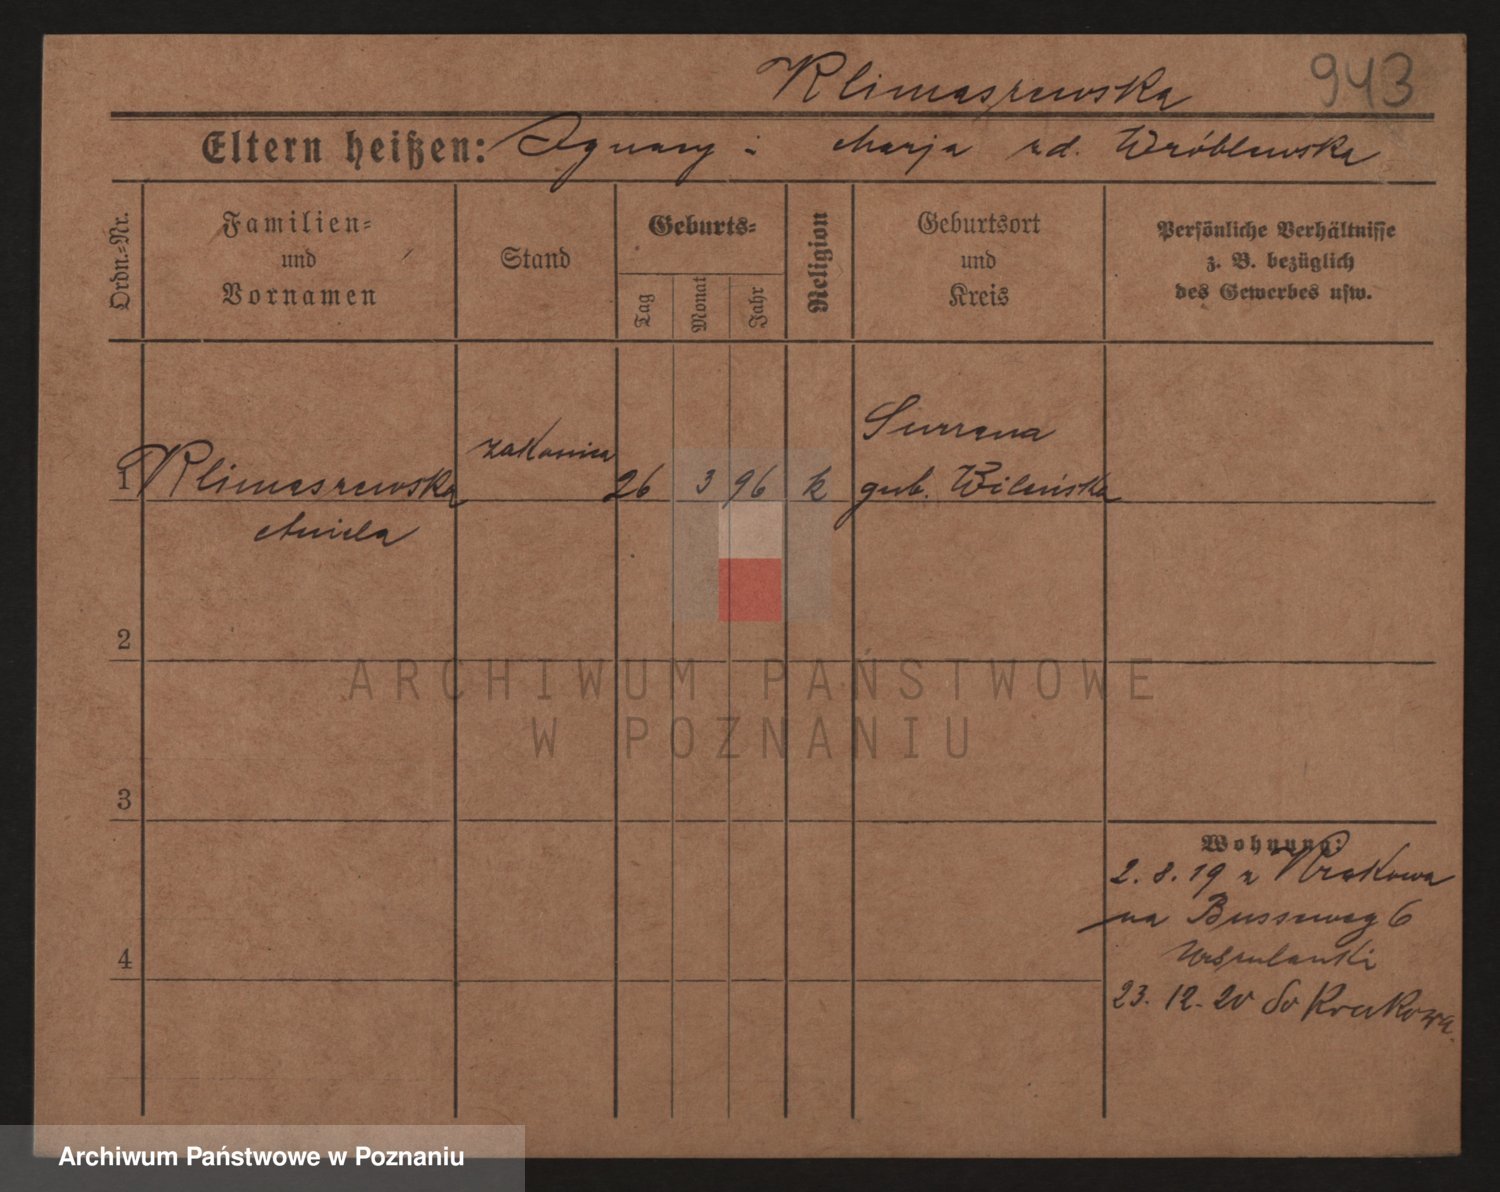 Klimaszewska 943
Eltern heißen: Ignacy i Marja zd. Wróblewska
Ordn.-Nr.
Familien-
und
Vornamen
Stand
Geburts-
Tag
Monat
Jahr
Religion
Geburtsort
und
Kreis
Persönliche Verhältnisse
z. B. bezüglich
des Gewerbes usw.
1 Klimaszewska
Aniela
zakonnica
26 3 96 k
gub. Wileńska
2
3
4
Wohnung:
2. 8. 19 z Krakowa
na Busseweg 6
Urszulanki
23. 12. 20 do Krakowa
ARCHIWUM PAŃSTWOWE
W POZNANIU
Archiwum Państwowe w Poznaniu